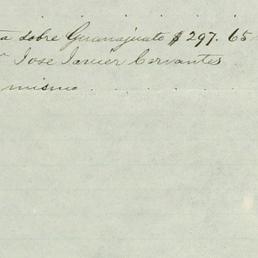 a sobre Guanajuato $ 297. 65
José Javier Cervantes
mismo . . . . . . . .